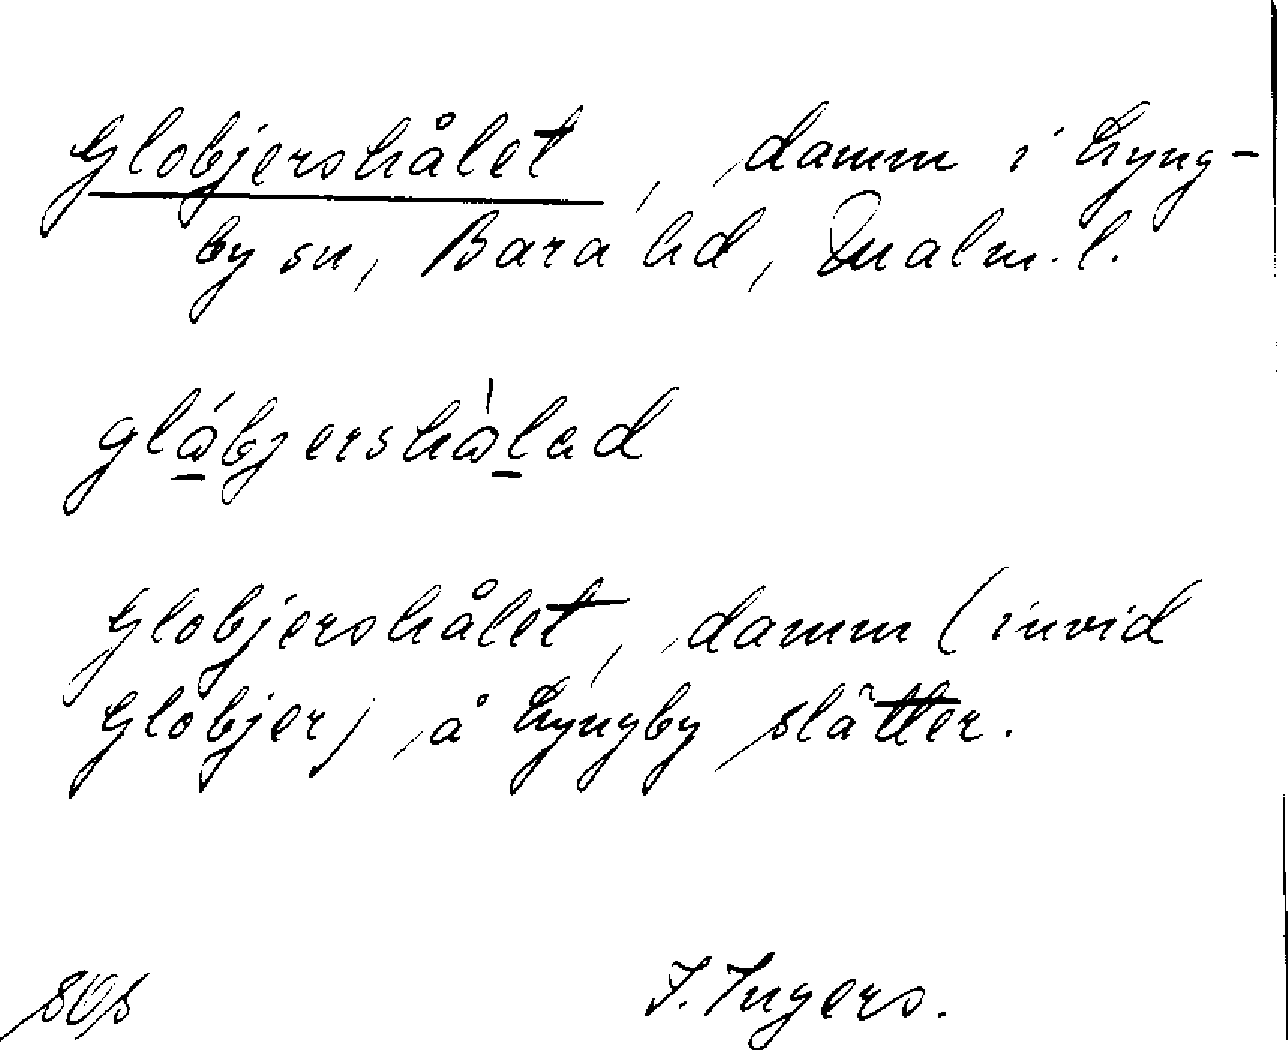 Globjershålet, damm i Lyng-
by sn, Bara hd, Malm. l.
glåbjershålad
Globjershålet, damm (invid
Globjer) å Lyngby slätter.
I. Ingers.